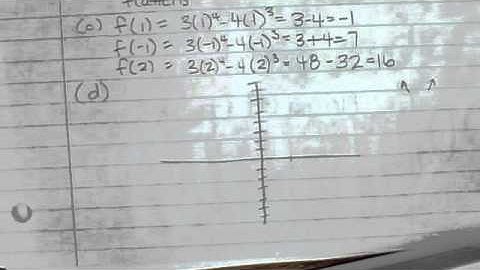 (c) f(1) = 3(1)⁴-4(1)³= 3-4=-1
f(-1) = 3(-1)⁴-4(-1)³=3+4=7
f(2) = 3(2)⁴-4(2)³=48-32=16
(d)